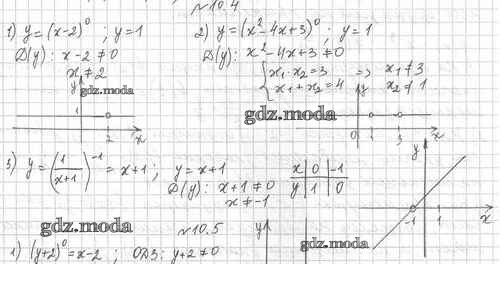 №10.4
1) y=(x-2)⁰ ; y=1
D(y): x-2≠0
x≠2
y
1
2
x
2) y=(x²-4x+3)⁰ ; y=1
D(y): x²-4x+3≠0
{x₁·x₂=3
x₁+x₂=4 => x₁≠3
x₂≠1
gdz.moda
y
0 1 3 x
3) y=(1/(x+1))⁻¹=x+1 ; y=x+1
D(y): x+1≠0
x≠-1
x | 0 | -1
y | 1 | 0
y
-1 1 x
gdz.moda
№10.5
gdz.moda
1) (y+2)⁰=x-2 ; ОДЗ: y+2≠0
y